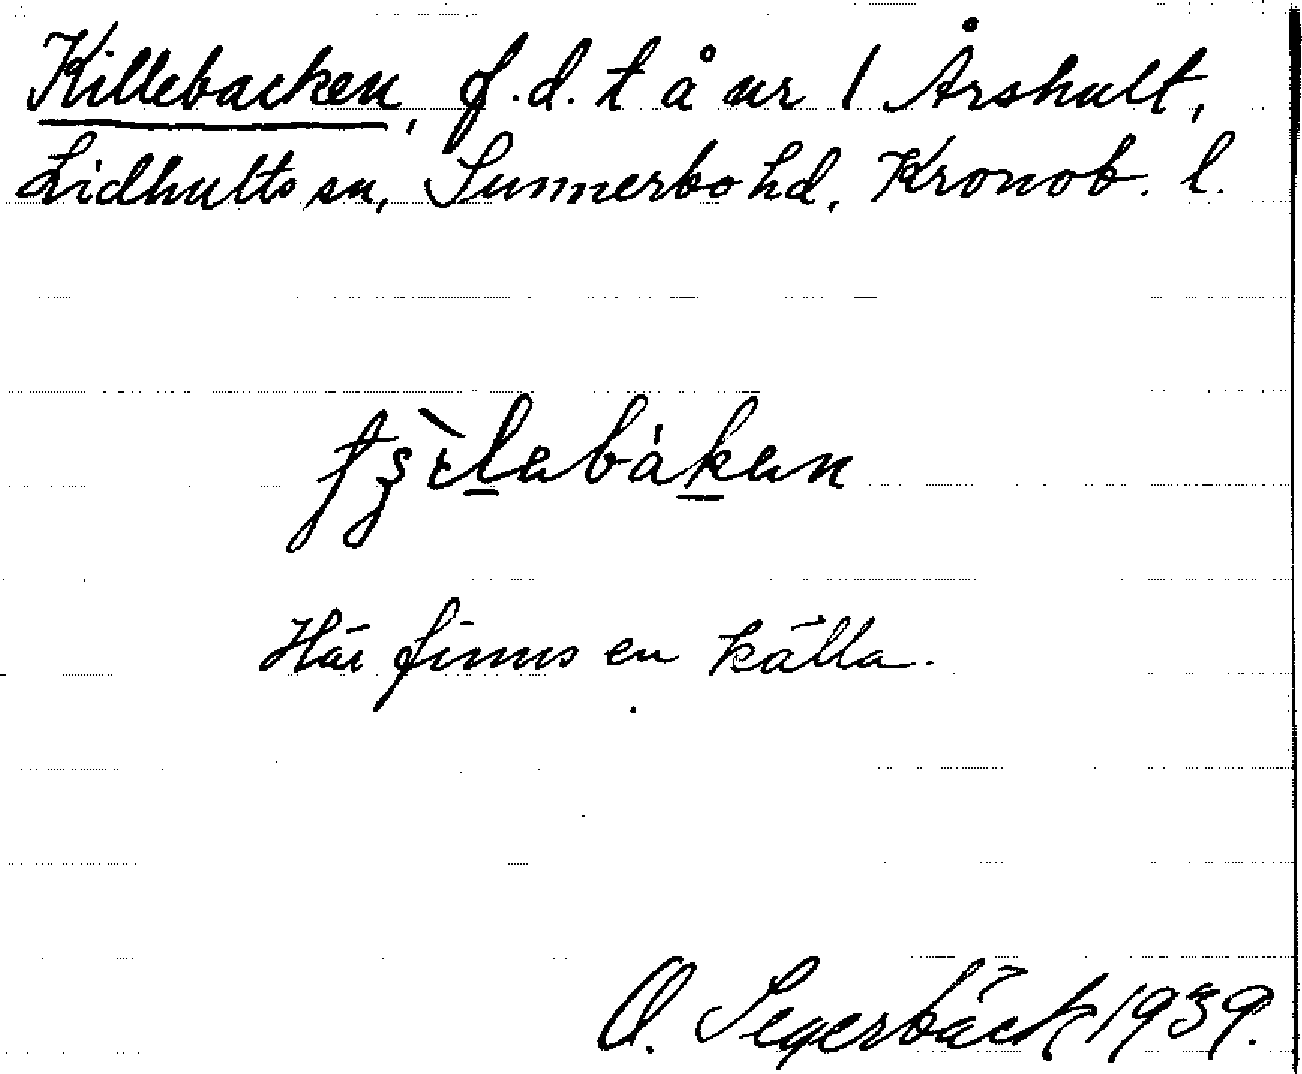 Killebacken, f.d. t å nr 1 Årshult,
Lidhults sn, Sunnerbo hd, Kronob. l.
tʂɪ̀lebákan
Här finns en källa.
O. Segerbäck 1939.